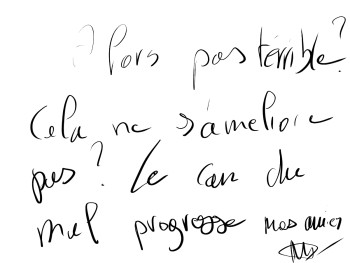 Alors pas terrible?
Cela ne s'améliore
pas? Le can du
mal progresse mes amies